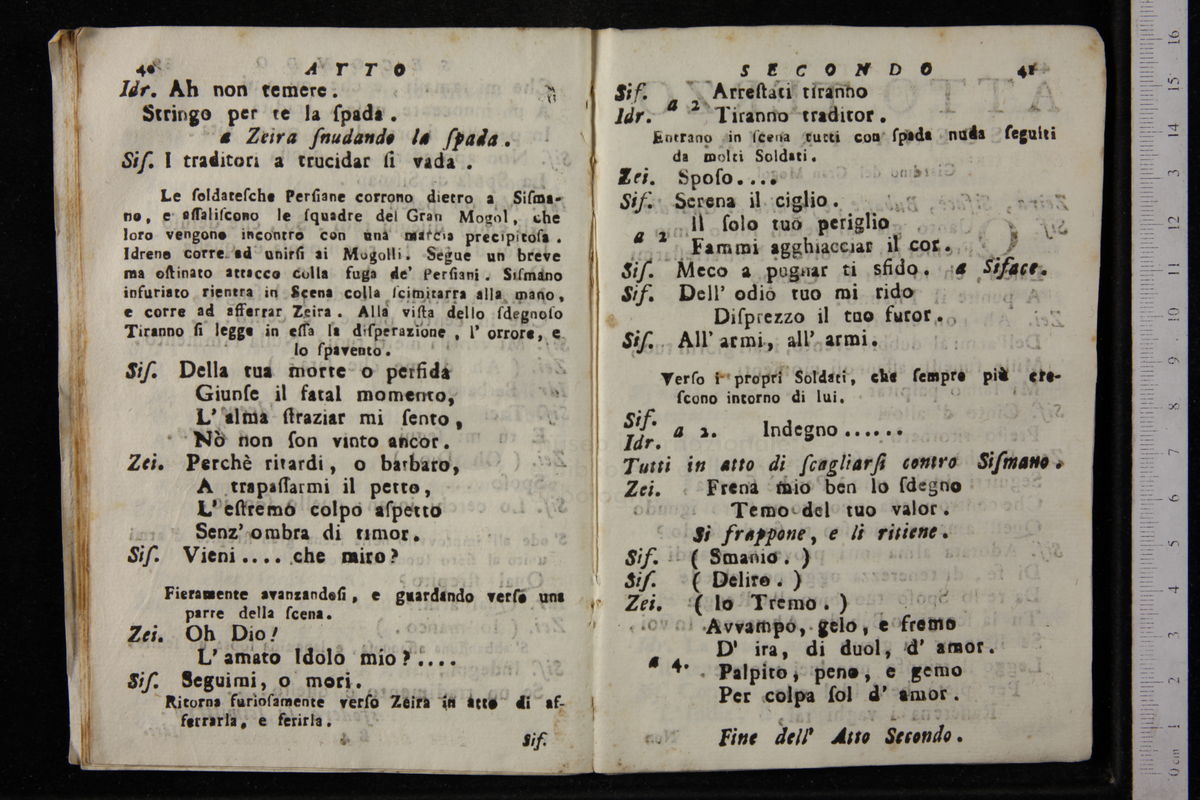 40 ATTO
Idr. Ah non temere.
Stringo per te la ſpada.
a Zeira ſnudando la ſpada.
Siſ. I traditori a trucidar ſi vada.
Le ſoldateſche Perſiane corrono dietro a Siſma-
no, e aſſaliſcono le ſquadre del Gran Mogol, che
loro vengono incontro con una marcia precipitoſa.
Idreno corre ad unirſi ai Mogolli. Segue un breve
ma oſtinato attacco colla fuga de' Perſiani. Siſmano
infuriato rientra in Scena colla ſcimitarra alla mano,
e corre ad afferrar Zeira. Alla viſta dello ſdegnoſo
Tiranno ſi legge in eſſa la diſperazione, l' orrore, e
lo ſpavento.
Siſ. Della tua morte o perfida
Giunſe il fatal momento,
L' alma ſtraziar mi ſento,
Nò non ſon vinto ancor.
Zei. Perchè ritardi, o barbaro,
A trapaſſarmi il petto,
L' eſtremo colpo aſpetto
Senz' ombra di timor.
Siſ. Vieni.... che miro?
Fieramente avanzandoſi, e guardando verſo una
parre della ſcena.
Zei. Oh Dio!
L' amato Idolo mio?....
Siſ. Seguimi, o mori.
Ritorna furioſamente verſo Zeira in atto di af-
ferrarla, e ferirla.
Siſ.
SECONDO 41
Sif. Arreſtati tiranno
a 2
Idr. Tiranno traditor.
Entrano in ſcena tutti con ſpada nuda ſeguiti
da molti Soldati.
Zei. Spoſo....
Sif. Serena il ciglio.
a 2 Il ſolo tuo periglio
Fammi agghiacciar il cor.
Siſ. Meco a pugnar ti sfido. a Siface.
Sif. Dell' odio tuo mi rido
Diſprezzo il tuo furor.
Siſ. All' armi, all' armi.
Verſo i propri Soldati, che ſempre più cre-
ſcono intorno di lui.
Sif.
a 2. Indegno......
Idr.
Tutti in atto di ſcagliarſi contro Siſmano.
Zei. Frena mio ben lo ſdegno
Temo del tuo valor.
Si frappone, e li ritiene.
Sif. ( Smanio. )
Siſ. ( Deliro. )
Zei. ( Io Tremo. )
Avvampo, gelo, e fremo
D' ira, di duol, d' amor.
a 4. Palpito, peno, e gemo
Per colpa ſol d' amor.
Fine dell' Atto Secondo.